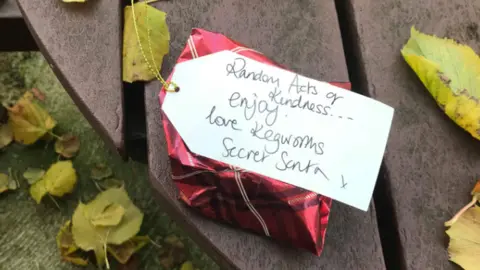 Random Acts of
Kindness...
enjoy.
love Kegworths
Secret Santa
x